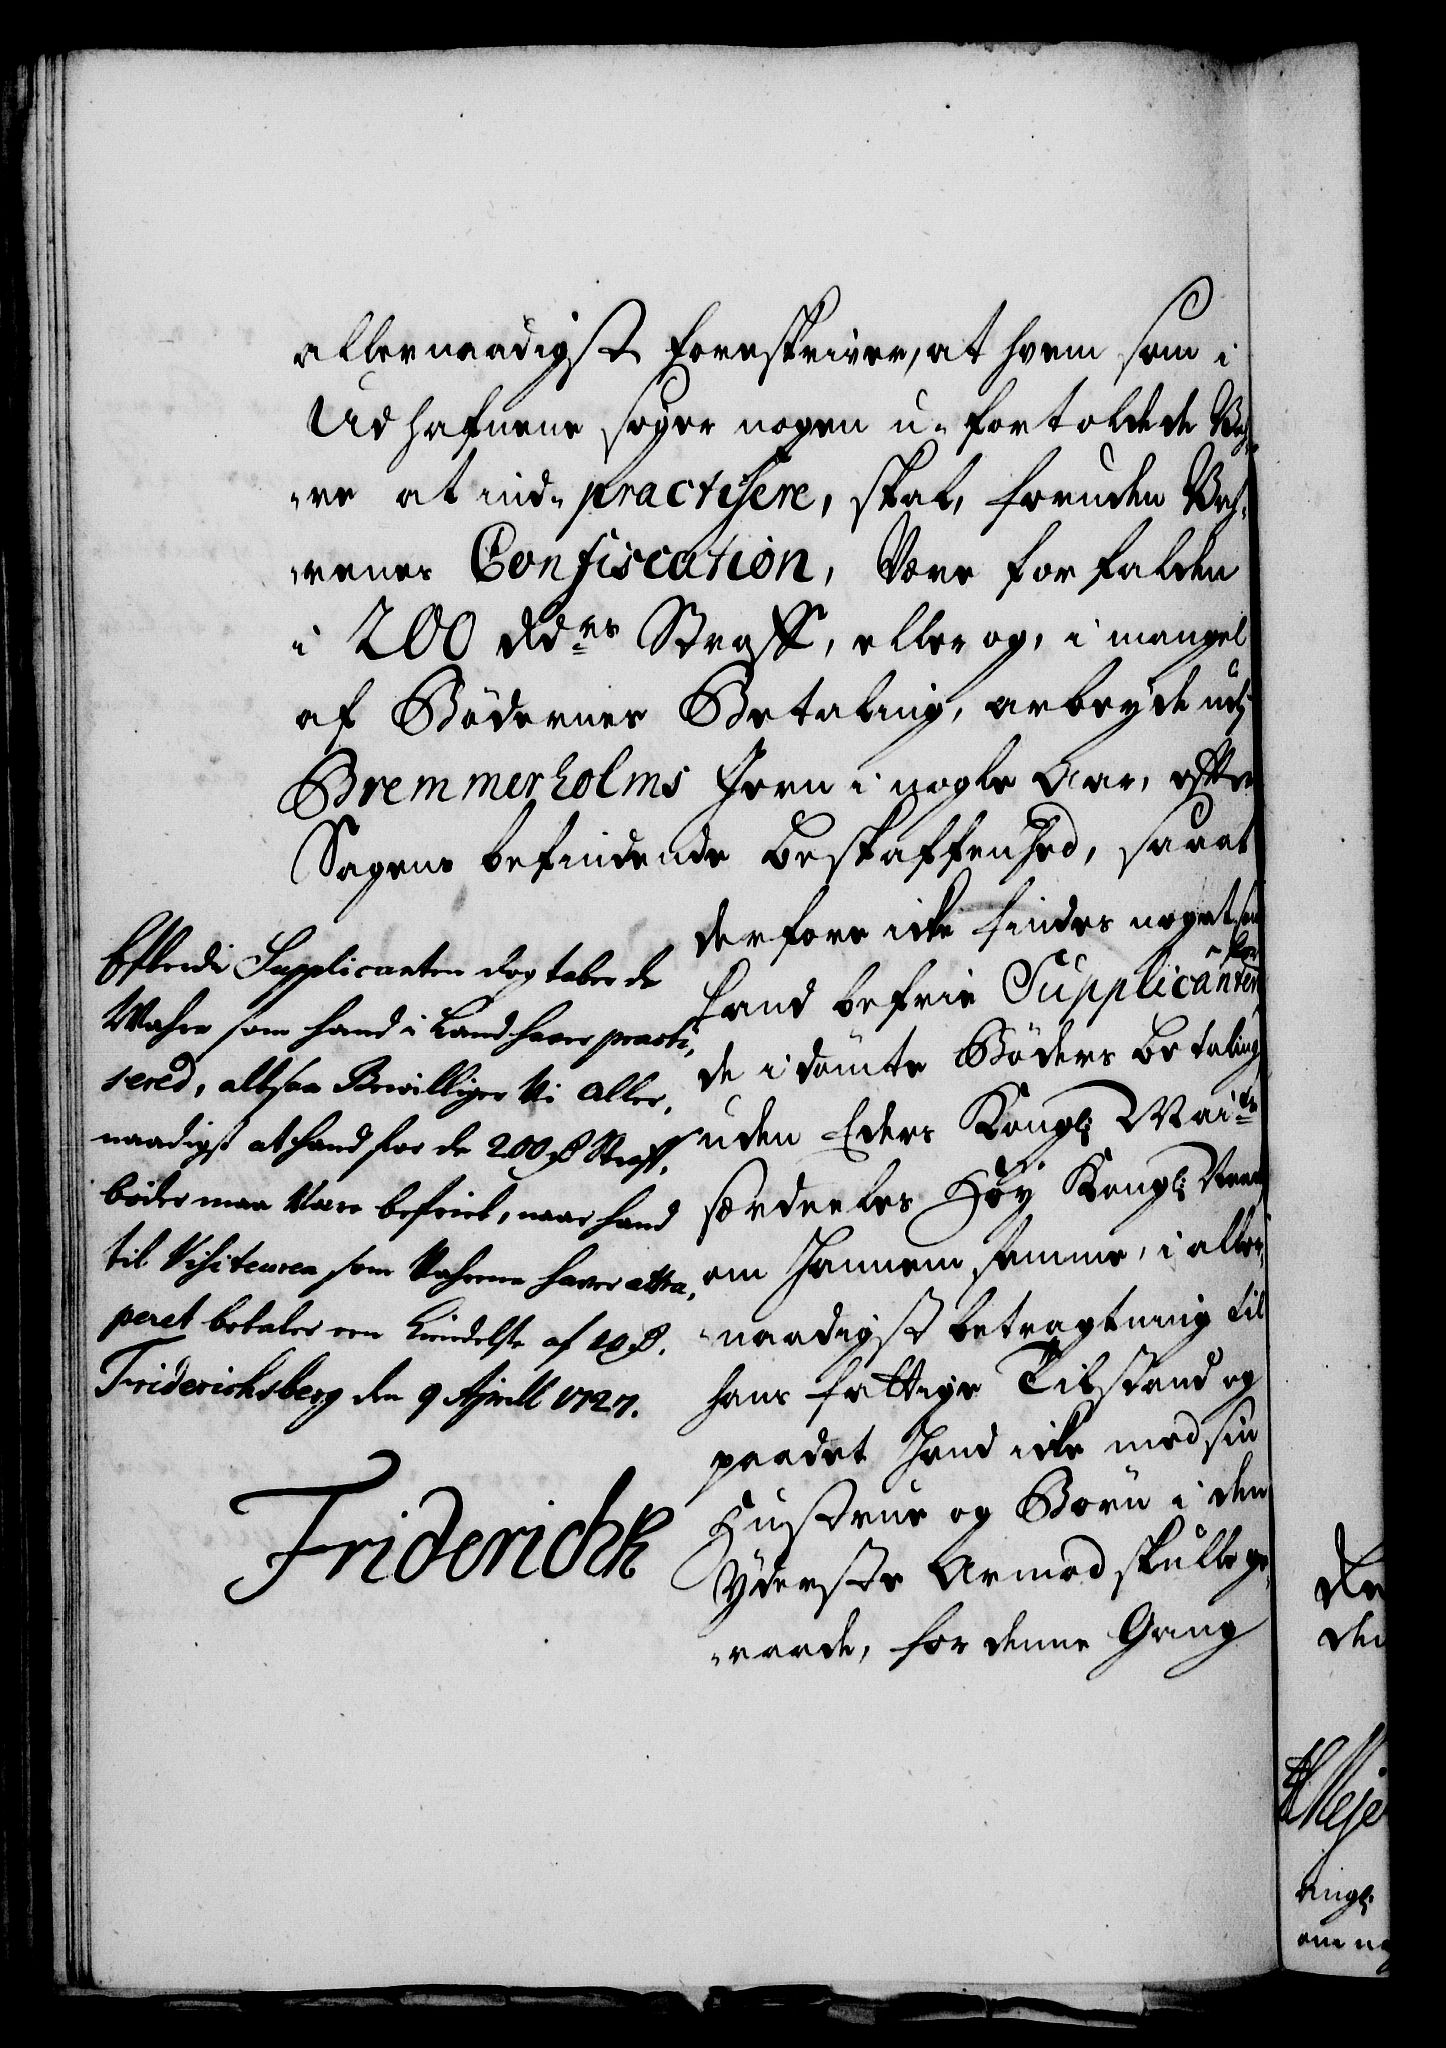 allernaadigst foreskriver, at hvem som i
Udhafnene søger nogen u-fortoldede Vah-
-re at ind-practisere, skal, foruden Vah-
-renes Confiscation, Være forfalden
i 200 Rdrs Straff, eller og, i mangel
af Bödernes Betaling, arbeyde udj
Bremmerholms Jern i nogle Aar, efter
Sagens befindende beskaffenhed, saa at
derfore icke findes noget som
kand befrie Supplicanten for
de idömte Böders betaling
uden Eders Kongl: Mai:ts
særdeeles Høy Kongl: Naade
om hannem samme, i aller-
-naadigst betragtning til
hans fattige Tilstand og
paadet hand icke med sin
Hustrue og Børn i den
Yderste Armod skulle ge-
-raade, for denne Gang
Efterdi Supplicanten dog taber de
Wahre som hand i Land haver practi-
sered, altsaa Bewilliger Vi aller-
naadigst at hand for de 200 Rd Straff-
böder maa Være befriet, naar hand
til Visiteuren som Vahrene haver attra-
peret betaler een Kiendelse af 10 Rd.
Friderichsberg den 9 Aprill 1727.
Friderich R